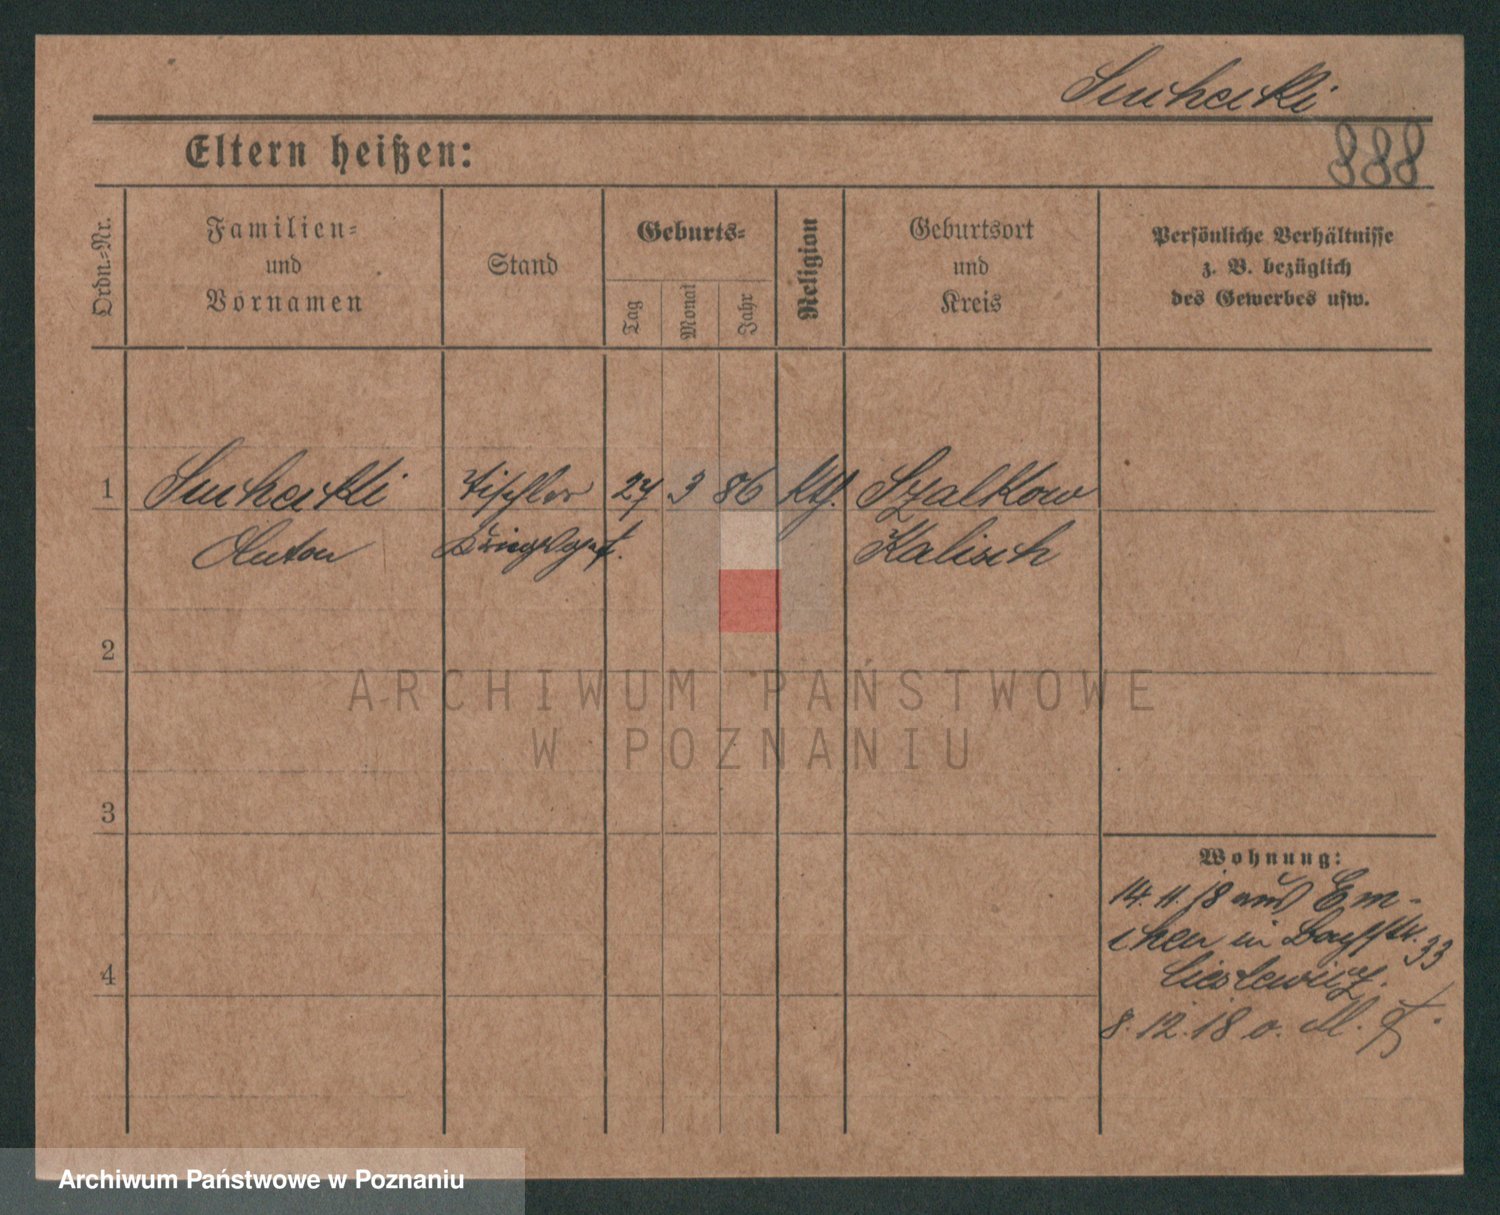 Suchecki
888
Eltern heißen:
Ordn.-Nr.
Familien-
und
Vornamen
Stand
Geburts-
Tag
Monat
Jahr
Religion
Geburtsort
und
Kreis
Persönliche Verhältnisse
z. B. bezüglich
des Gewerbes usw.
1 Suchecki Tischler 27 3 86 kth. Szalkow
Anton Kalisch
2
3
4
Wohnung:
14. 11. 18 aus Em-
chen in 33
Cieslewicz.
8. 12. 18 o.
ARCHIWUM PAŃSTWOWE
W POZNANIU
Archiwum Państwowe w Poznaniu